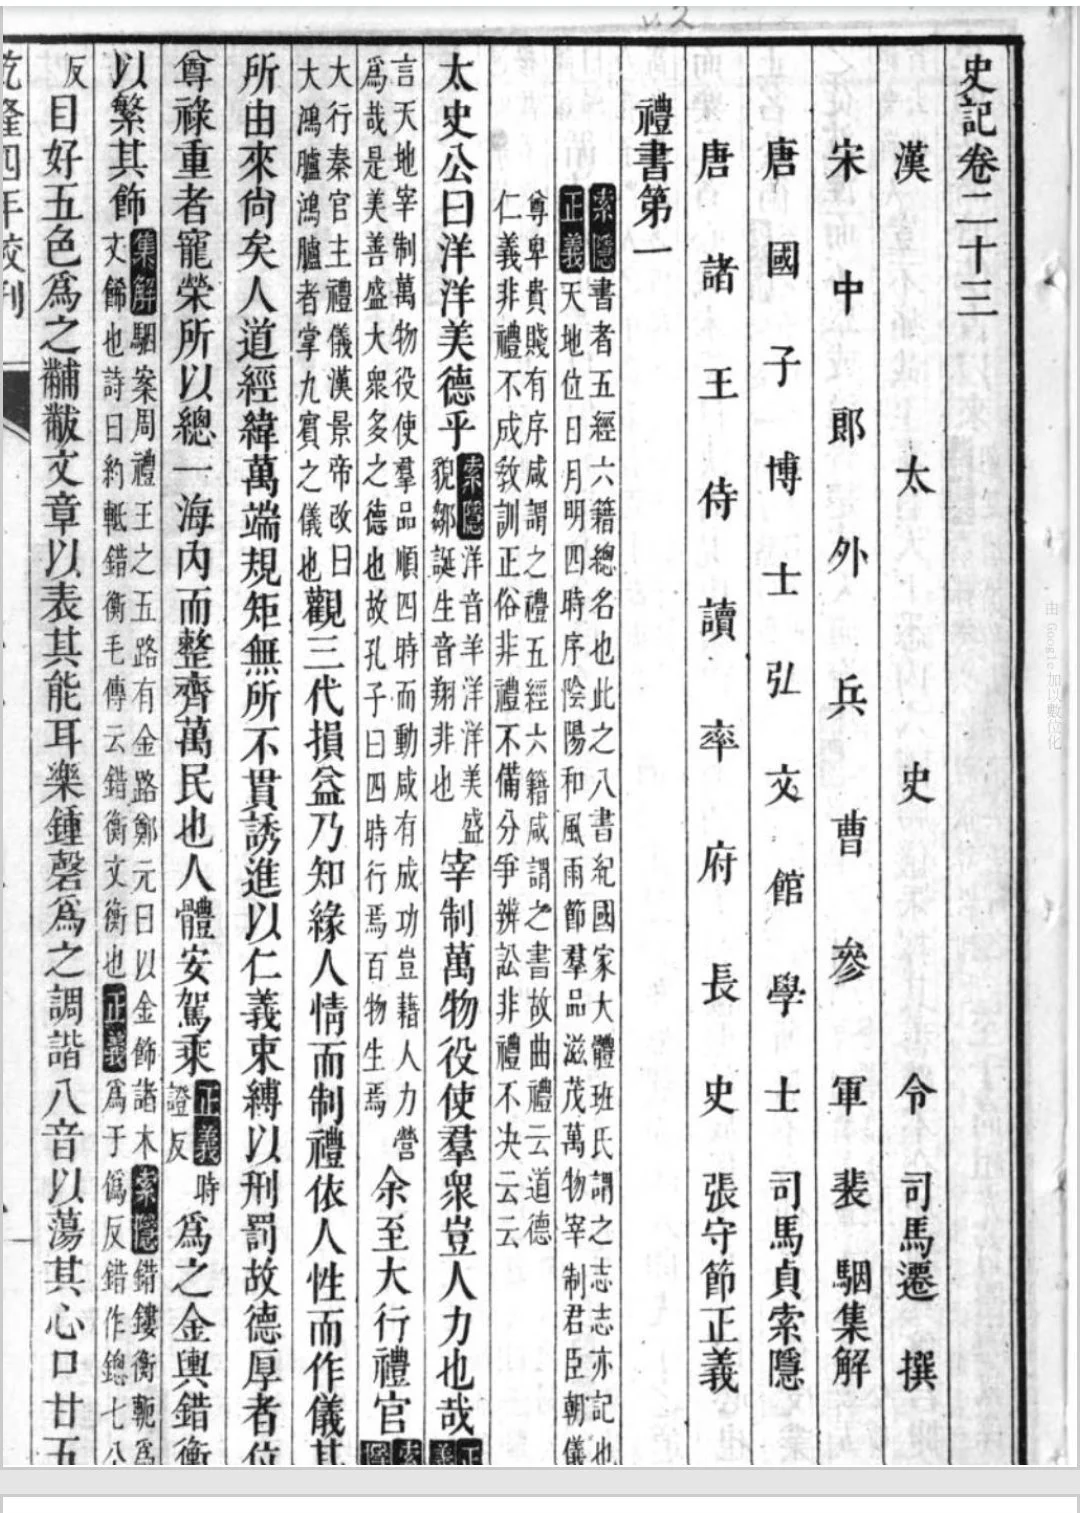 史記卷二十三
漢太史令司馬遷撰
宋中郎外兵曹參軍裴駰集解
唐國子博士弘文館學士司馬貞索隱
唐諸王侍讀率府長史張守節正義
禮書第一
索隱書者五經六籍總名也此之八書紀國家大體班氏謂之志志亦記也
正義天地位日月明四時序陰陽和風雨節羣品滋茂萬物宰制君臣朝儀
尊卑貴賤有序咸謂之禮五經六籍咸謂之書故曲禮云道德
仁義非禮不成敎訓正俗非禮不備分爭辨訟非禮不决云云
太史公曰洋洋美德乎索隱洋音羊洋洋美盛貌鄒誕生音翔非也宰制萬物役使羣衆豈人力也哉正義
言天地宰制萬物役使羣品順四時而動咸有成功豈藉人力營爲哉是美善盛大衆多之德也故孔子曰四時行焉百物生焉余至大行禮官索隱
大行秦官主禮儀漢景帝改曰大鴻臚鴻臚者掌九賓之儀也觀三代損益乃知緣人情而制禮依人性而作儀其
所由來尙矣人道經緯萬端規矩無所不貫誘進以仁義束縛以刑罰故德厚者位
尊祿重者寵榮所以總一海內而整齊萬民也人體安駕乘正義時證反爲之金輿錯衡
以繁其飾集解駰案周禮王之五路有金路鄭元曰以金飾諸木文飾也詩曰約軝錯衡毛傳云錯衡文衡也索隱錯鏤衡軛爲正義爲于僞反錯作鏓七公
反目好五色爲之黼黻文章以表其能耳樂鍾磬爲之調諧八音以蕩其心口甘五
乾隆四年校刊
由 Google 加以數位化